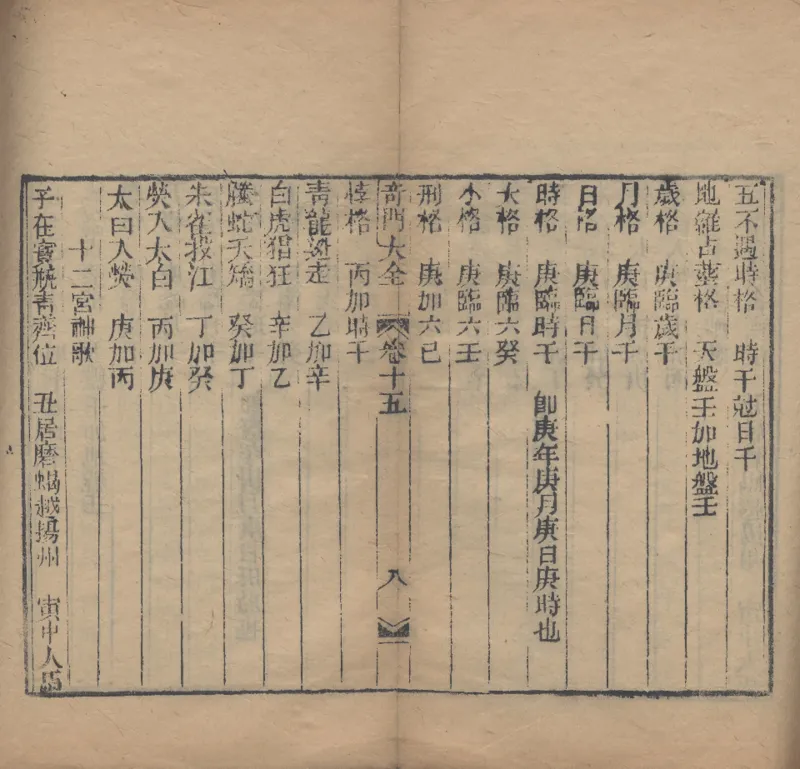 五不遇時格　時干尅日干
地羅占葢格　天盤壬加地盤壬
歲格　庚臨歲干
月格　庚臨月干
日格　庚臨日干
時格　庚臨時干　卽庚年庚月庚日庚時也
大格　庚臨六癸
小格　庚臨六壬
刑格　庚加六己
奇門大全　卷十五　八
悖格　丙加時干
靑龍逃走　乙加辛
白虎猖狂　辛加乙
螣蛇天矯　癸加丁
朱雀投江　丁加癸
熒入太白　丙加庚
太白入熒　庚加丙
十二宮神歌
子在寶瓶青齊位　丑居磨蝎越揚州　寅中人馬